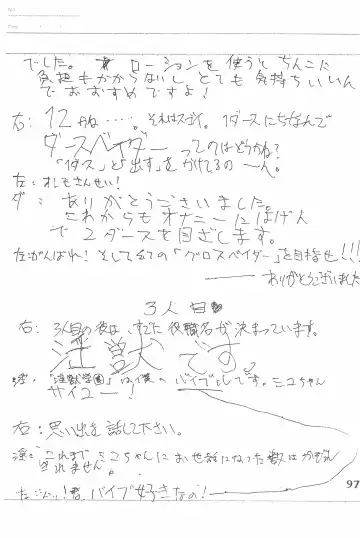 でした。 ローションを使うとちんこに
負担もかからないし、とても気持ちいいん
でおすすめですよ!
右: 12かね……。それはスゴイ。1ダースにちなんで
ダースベイダー ってのはどうかね?
「1ダス」と「出す」をかけてるの 一人。
左: オレもさんせい!
ダ: ありがとうございました。
これからもオナニーにはげん
で2ダースを目ざします。
左:がんばれ! そして全ての「グロスベイダー」を目指せ!!!
――ありがとうございました
3人目
右: 3人目の彼は、すでに役職名が決まっています。
淫獣です。
淫:「淫獣学園」は僕のバイブルです。ミユちゃん
サイコー!
右: 思い出を話して下さい。
淫: これまでミユちゃんにお世話になった数はかぞえ
きれません。
バイブ好きなの!
97